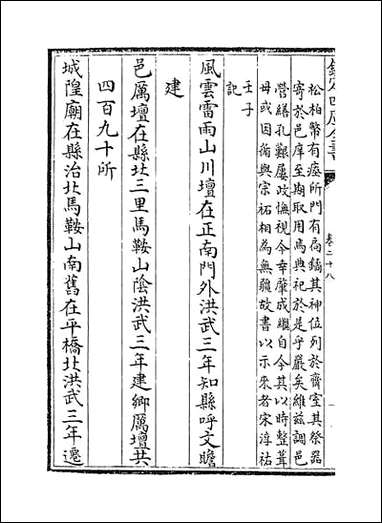 欽定四庫全書
卷二十八
松柏幣有瘞所門有扃鐍其神位列於齋室其祭器
寄於邑庠至期取用焉典祀於是乎嚴矣維兹調邑
營繕孔艱屢政憮視今幸肇成繼自今其以時整葺
毋或因循與宗祏相為無疆故書以示來者宋淳祐
壬子
記
風雲雷雨山川壇在正南門外洪武三年知縣呼文瞻
建
邑厲壇在縣北三里馬鞍山隂洪武三年建鄉厲壇共
四百九十所
城隍廟在縣治北馬鞍山南舊在平橋北洪武三年遷